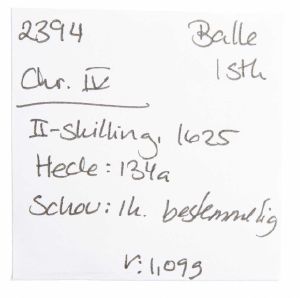 2394 Balle
1 stk
Chr. IV
II-skilling, 1625
Hede: 134a
Schou: Ik. bestemmelig
V: 1,09g